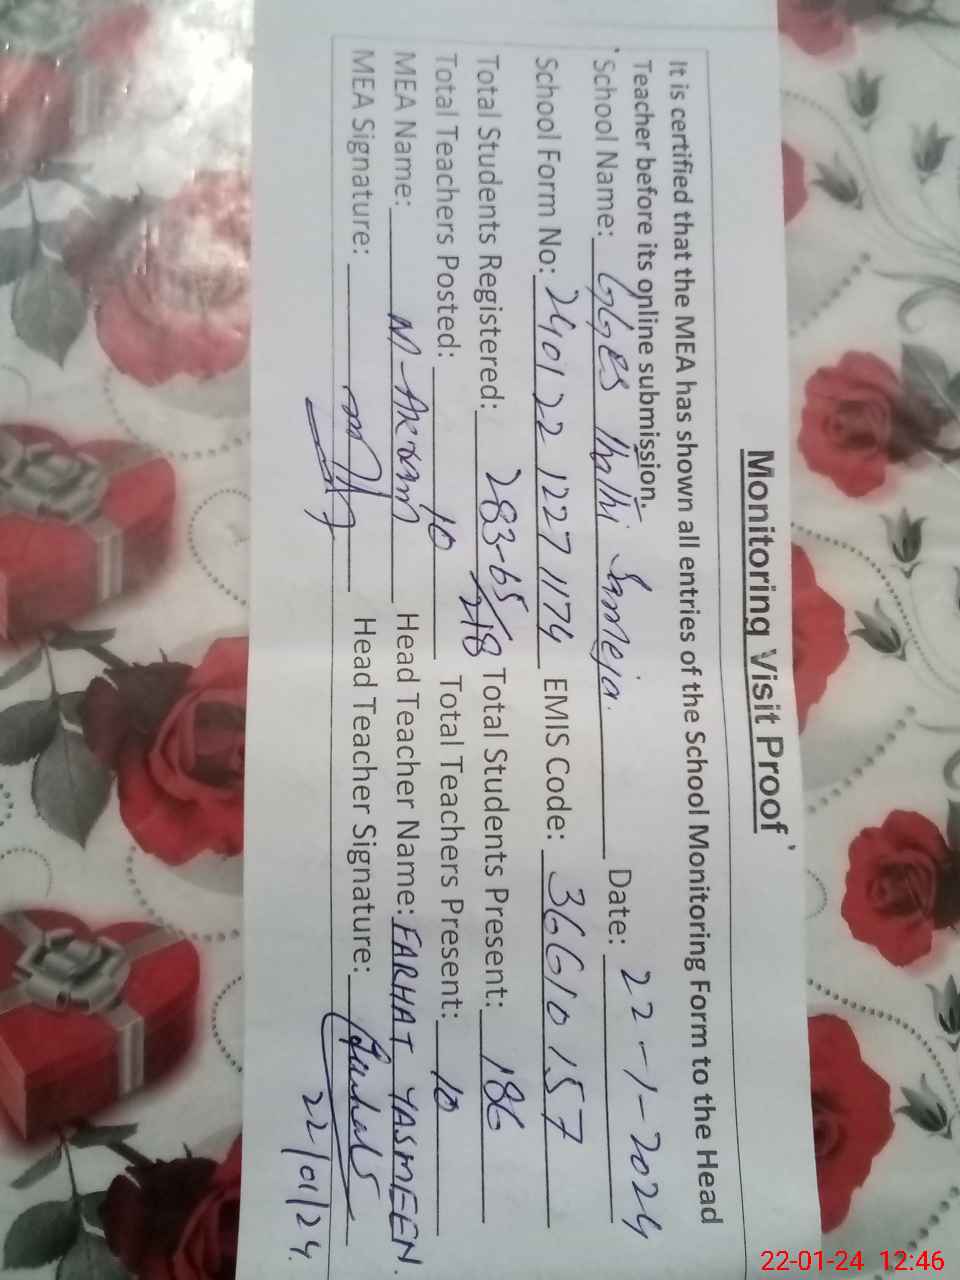 Monitoring Visit Proof
It is certified that the MEA has shown all entries of the School Monitoring Form to the Head
Teacher before its online submission.
School Name: GGES Thathi Sameja. Date: 22-1-2024
School Form No: 240122 1227 1174 EMIS Code: 36610157
Total Students Registered: 283-65/218 Total Students Present: 186
Total Teachers Posted: 10 Total Teachers Present: 10
MEA Name: M-Akram Head Teacher Name: FARHAT YASMEEN.
MEA Signature: Head Teacher Signature:
22/01/24.
22-01-24 12:46